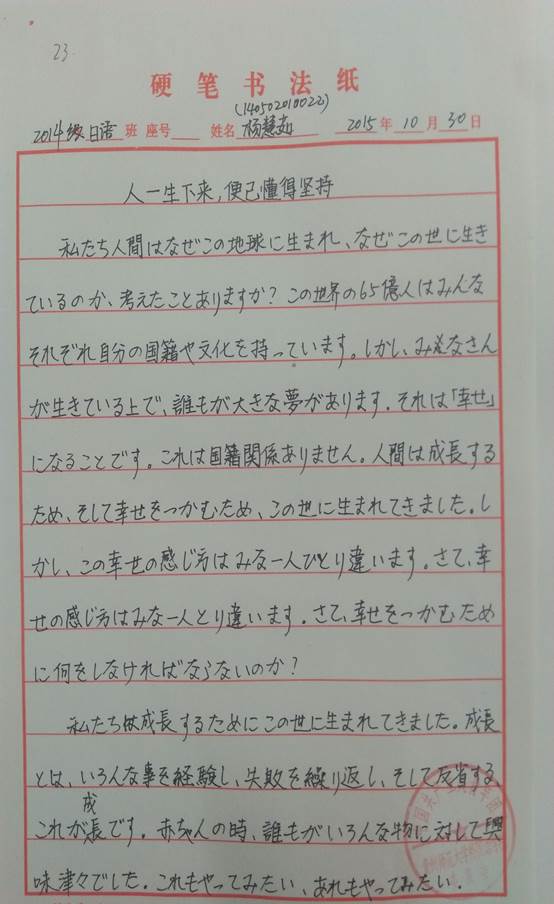 23
硬笔书法纸
(140502010022)
2014级日语班 座号 姓名杨慧茹 2015年10月30日
人一生下来,便已懂得坚持
私たち人間はなぜこの地球に生まれ、なぜこの世に生き
ているのか、考えたことありますか?この世界の65億人はみんな
それぞれ自分の国籍や文化を持っています。しかし、みなさん
が生きている上で、誰もが大きな夢があります。それは「幸せ」
になることです。これは国籍関係ありません。人間は成長する
ため、そして幸せをつかむため、この世に生まれてきました。し
かし、この幸せの感じ方はみな一人ひとり違います。さて、幸
せの感じ方はみな一人とり違います。さて、幸せをつかむため
に何をしなければならないのか?
私たちは成長するためにこの世に生まれてきました。成長
とは、いろんな事を経験し、失敗を繰り返し、そして反省する、
これが成長です。赤ちゃんの時、誰もがいろんな物に対して興
味津々でした。これもやってみたい、あれもやってみたい.